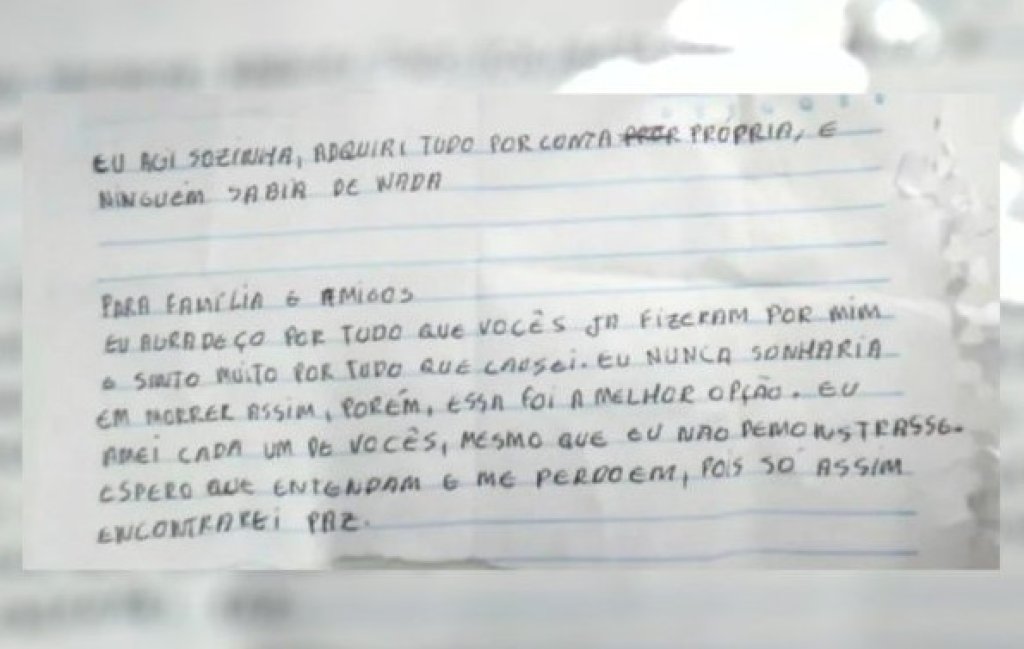 EU AGI SOZINHA, ADQUIRI TUDO POR CONTA PROPRIA, E
NINGUEM SABIA DE NADA
PARA FAMÍLIA E AMIGOS
EU AGRADEÇO POR TUDO QUE VOCÊS JA FIZERAM POR MIM
E SINTO MUITO POR TUDO QUE CAUSEI. EU NUNCA SONHARIA
EM MORRER ASSIM, PORÉM, ESSA FOI A MELHOR OPÇÃO. EU
AMEI CADA UM DE VOCÊS, MESMO QUE EU NÃO DEMONSTRASSE.
ESPERO QUE ENTENDAM E ME PERDOEM, POIS SÓ ASSIM
ENCONTRAREI PAZ.